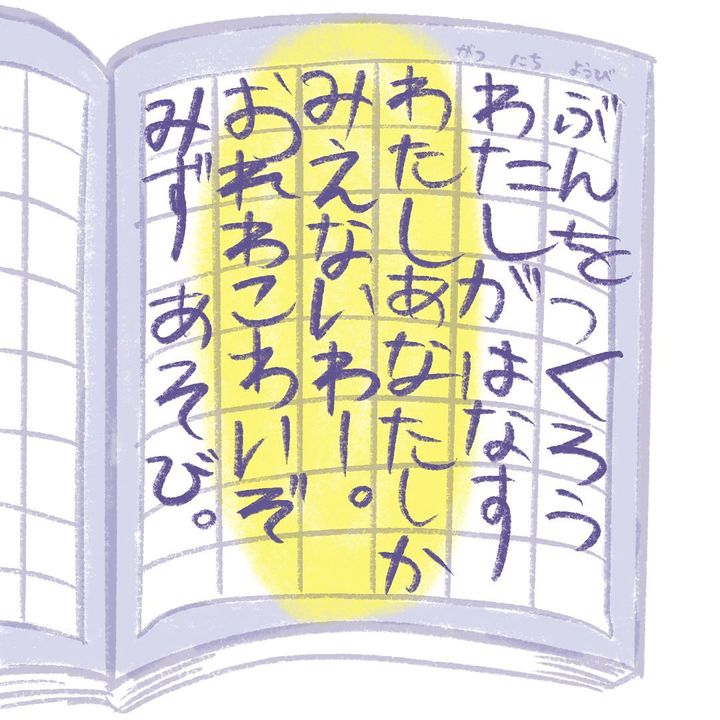 がつ にち ようび
ぶんをつくろう
わたしがはなす
わたしあなたしか
みえないわー。
おれわこわいぞ
みず あそび。